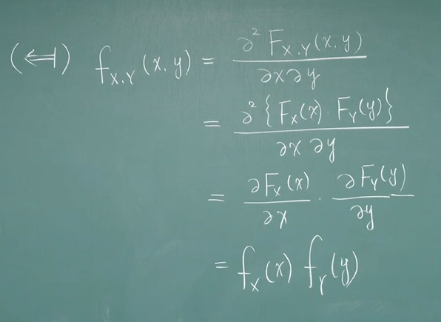 (⟸) f_{X,Y}(x,y) = ∂² F_{X,Y}(x,y) / ∂x∂y
= ∂² {F_X(x) F_Y(y)} / ∂x ∂y
= ∂F_X(x) / ∂x · ∂F_Y(y) / ∂y
= f_X(x) f_Y(y)